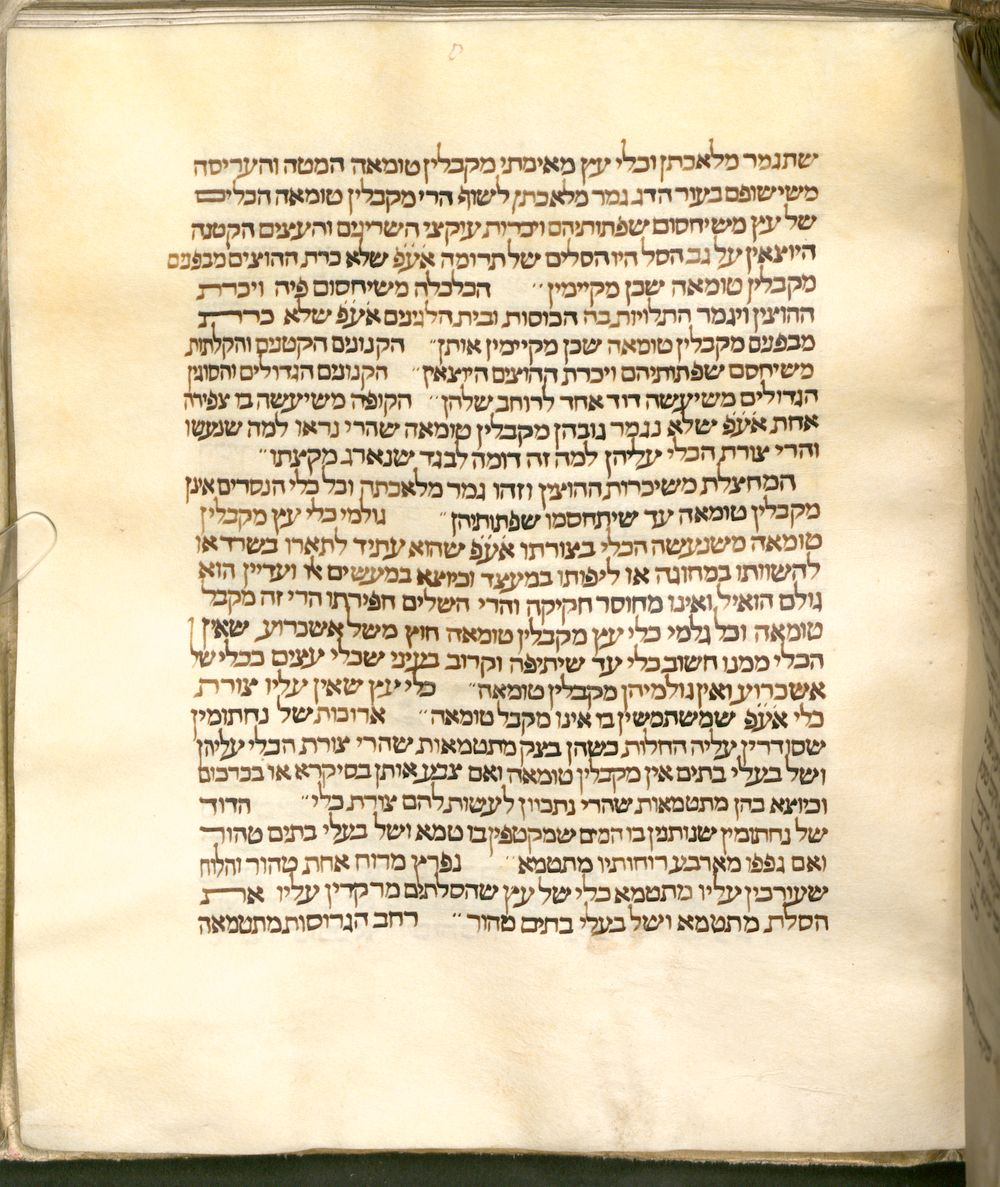 שתגמר מלאכתן וכלי עץ מאימתי מקבלין טומאה המטה והעריסה
משישופם בעור הדג גמר מלאכתן לשוף הרי מקבלין טומאה הכלים
של עץ משיחסום שפתותיהם ויכרות עוקצי השריגים והעצים הקטנה
היוצאין על גב הסל היו הסלים של תרומה אע״פ שלא כרת החוצים מבפנים
מקבלין טומאה שכן מקיימין ״ הכלכלה משיחסום פיה ויכרת
החוצין ויגמר התלויות בה הכוסות ובית הלגינים אע״פ שלא כרת
מבפנים מקבלין טומאה שכן מקיימין אותן״ הקנונים הקטנים והקלתות
משיחסם שפתותיהם ויכרת החוצים היוצאין״ הקנונים הגדולים והסוגין
הגדולים משיעשה דוד אחד לרוחב שלהן״ הקופה משיעשה בו צפירה
אחת אע״פ שלא נגמר גובהן מקבלין טומאה שהרי נראו למה שנעשו
והרי צורת הכלי עליהן למה זה דומה לבגד שנארג מקצתו״
המחצלת משיכרות החוצין וזהו גמר מלאכתה וכל כלי הנסרים אינן
מקבלין טומאה עד שיתחסמו שפתותיהן״ גולמי כלי עץ מקבלין
טומאה משנעשה הכלי בצורתו אע״פ שהוא עתיד לתארו בשרד או
להשוותו במחוגה או ליפותו במעצד וכיוצא במעשים אלו ועדיין הוא
גולם הואיל ואינו מחוסר חקיקה והרי השלים חפירתו הרי זה מקבל
טומאה וכל גלמי כלי עץ מקבלין טומאה חוץ משל אשכרוע שאין
הכלי ממנו חשוב כלי עד שיתיפה וקרוב בעיני שכלי עצים ככלי של
אשכרוע ואין גולמיהן מקבלין טומאה״ כלי עץ שאין עליו צורת
כלי אע״פ שמשתמשין בו אינו מקבל טומאה״ ארוכות של נחתומין
שסודרין עליה החלות כשהן בצק מתטמאות שהרי צורת הכלי עליהן
ושל בעלי בתים אין מקבלין טומאה ואם צבע אותן בסיקרא או בכרכום
וכיוצא בהן מתטמאות שהרי נתכוון לעשות להם צורת כלי״ הדוד
של נחתומין שנותנין בו המים שמקטפין בו טמא ושל בעלי בתים טהור
ואם גפפו מארבע רוחותיו מתטמא״ נפרץ מרוח אחת טהור והלוח
שעורכין עליו מתטמא כלי של עץ שהסלתים מרקדין עליו את
הסלת מתטמא ושל בעלי בתים טהור״ רחב הגרוסות מתטמאה